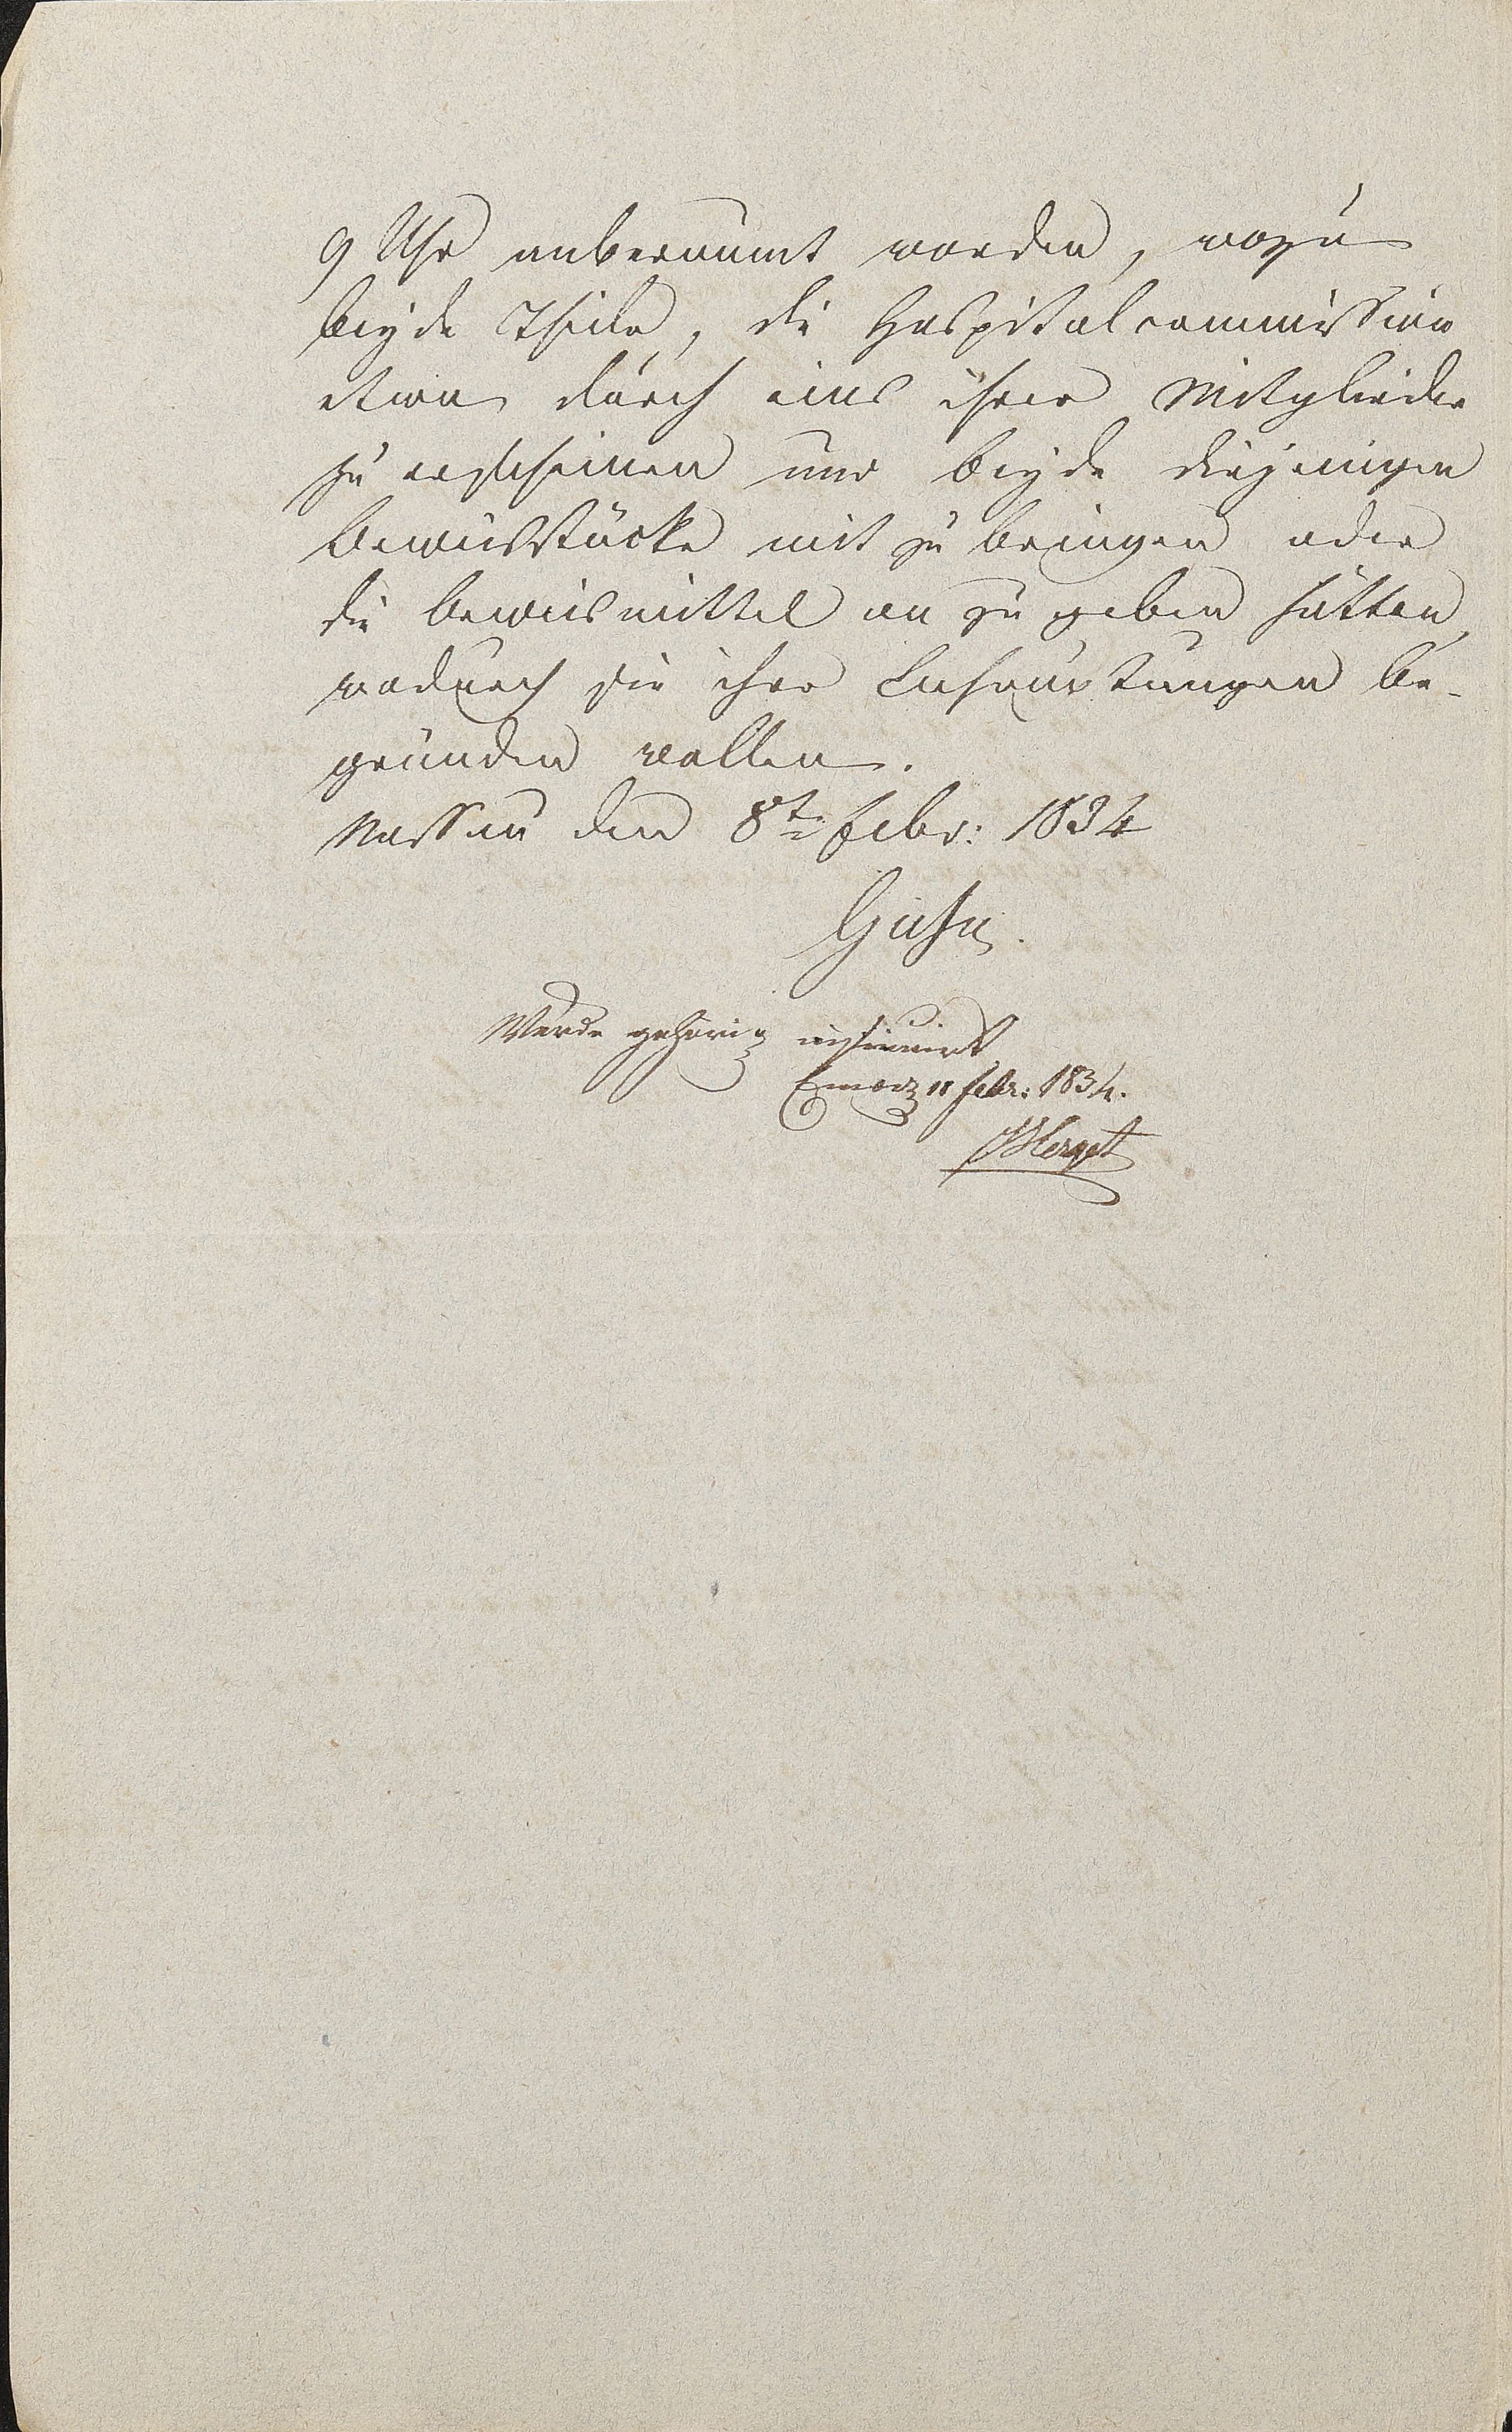 9 Uhr anberaumt worden, wozu
beyde Theile, die Hospitalcommission
etwa durch eins ihrer Mitglieder
zu erscheinen und beyde diejenigen
Beweisstücke mit zu bringen oder
die Beweismittel an zu geben hätten,
wodurch sie ihre Behauptungen be-
gründen wollen.
Nassau den 8t Febr: 1834
Wurde gehörig insinuirt
11 Febr: 1834.